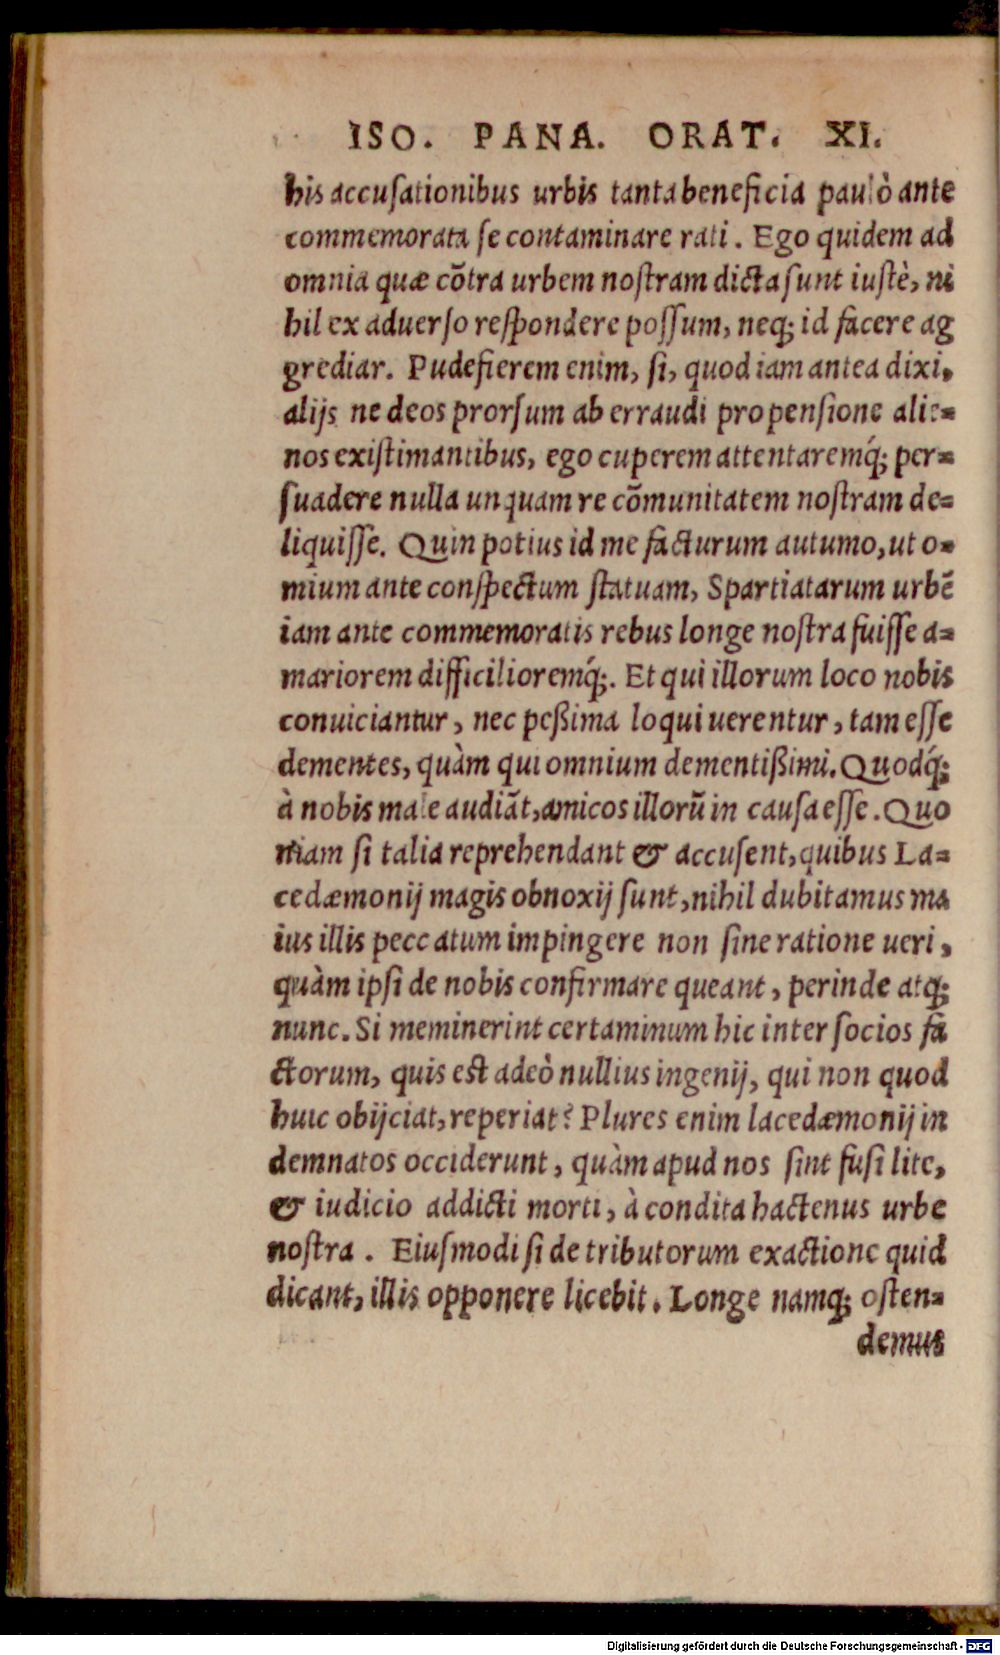 ISO. PANA. ORAT. XI.
his accuſationibus urbis tanta beneficia paulò ante
commemorata ſe contaminare rati. Ego quidem ad
omnia quæ cōtra urbem noſtram dicta ſunt iuſtè, ni
hil ex aduerſo reſpondere poſſum, neq; id facere ag
grediar. Pudefierem enim, ſi, quod iam antea dixi,
alijs ne deos prorſum ab erraudi propenſione alie=
nos exiſtimantibus, ego cuperem attentaremq́; per=
ſuadere nulla unquam re cōmunitatem noſtram de=
liquiſſe. Quin potius id me facturum autumo, ut o=
mium ante conſpectum ſtatuam, Spartiatarum urbē
iam ante commemoratis rebus longe noſtra fuiſſe a=
mariorem difficilioremq́;. Et qui illorum loco nobis
conuiciantur, nec peßima loqui uerentur, tam eſſe
dementes, quàm qui omnium dementißimi. Quodq́;
à nobis male audiāt, amicos illorū in cauſa eſſe. Quo
niam ſi talia reprehendant & accuſent, quibus La=
cedæmonij magis obnoxij ſunt, nihil dubitamus ma
ius illis peccatum impingere non ſine ratione ueri,
quàm ipſi de nobis confirmare queant, perinde atq;
nunc. Si meminerint certaminum hic inter ſocios fa
ctorum, quis eſt adeò nullius ingenij, qui non quod
huic obijciat, reperiat? Plures enim lacedæmonij in
demnatos occiderunt, quàm apud nos ſint fuſi lite,
& iudicio addicti morti, à condita hactenus urbe
noſtra. Eiuſmodi ſi de tributorum exactione quid
dicant, illis opponere licebit. Longe namq; oſten=
demus
Digitalisierung gefördert durch die Deutsche Forschungsgemeinschaft - DFG